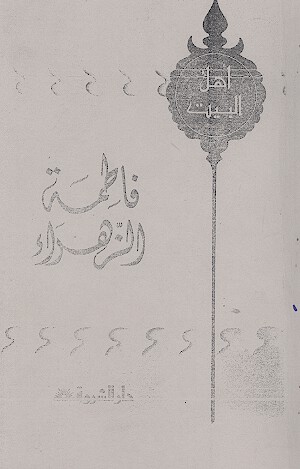 أهل
البيت
فاطمة
الزهراء
دار الشروق